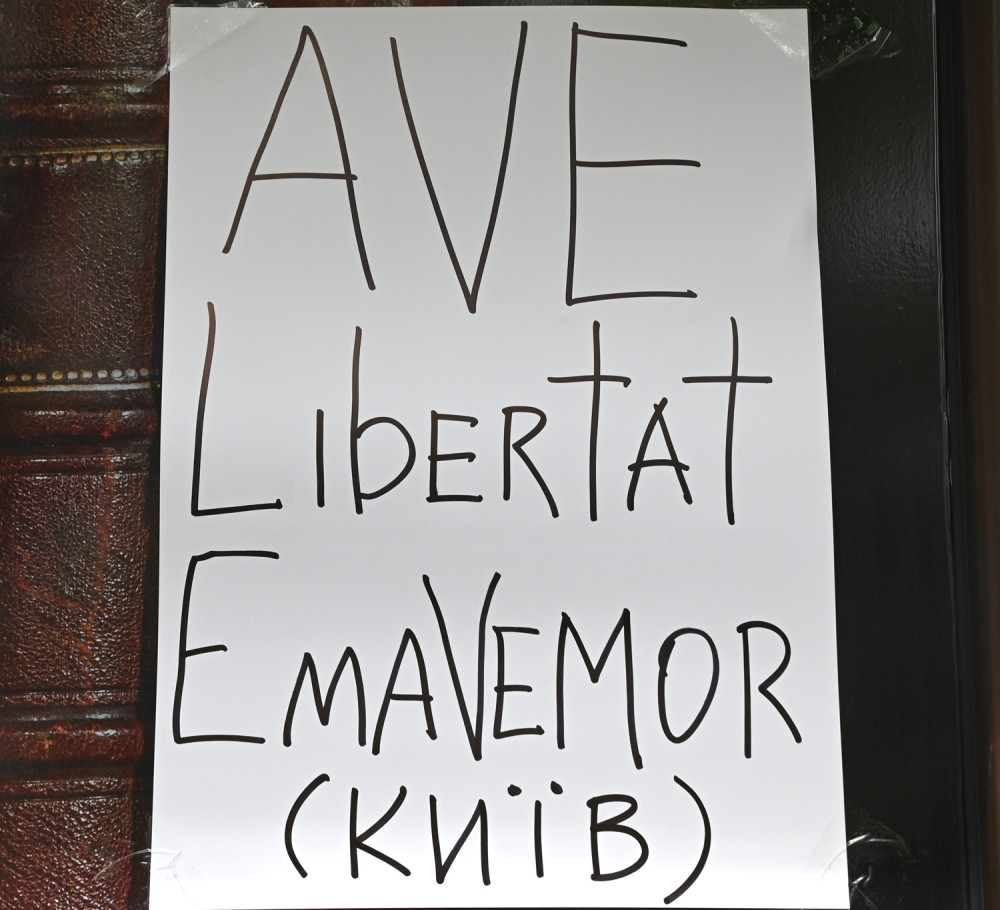 AVE
LIbERTAT
EMAVEMOR
(КИЇВ)